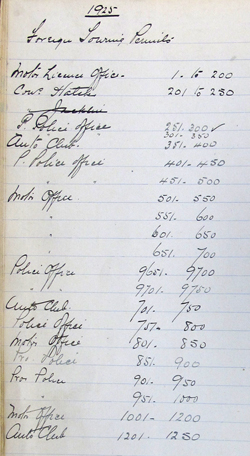 1935
Foreign Touring Permits
Motor Licence Office - 1. to 200
Cows Hotel 201 to 250
P. Police office 251. 300 ✓
301. 350
Auto Club. 351. 400
P. Police office 401 - 450
" 451. 500
Motor Office. 501. 550
" 551. 600
" 601. 650
" 651. 700
Police Office 9651. 9700
" 9701. 9750
Auto Club. 701. 750
Police Office 751. 800
Motor Office 801. 850
Pri Police 851. 900
Pro Police 901. 950
" 951. 1000
Motor Office 1001 - 1200
Auto Club 1201. 1250